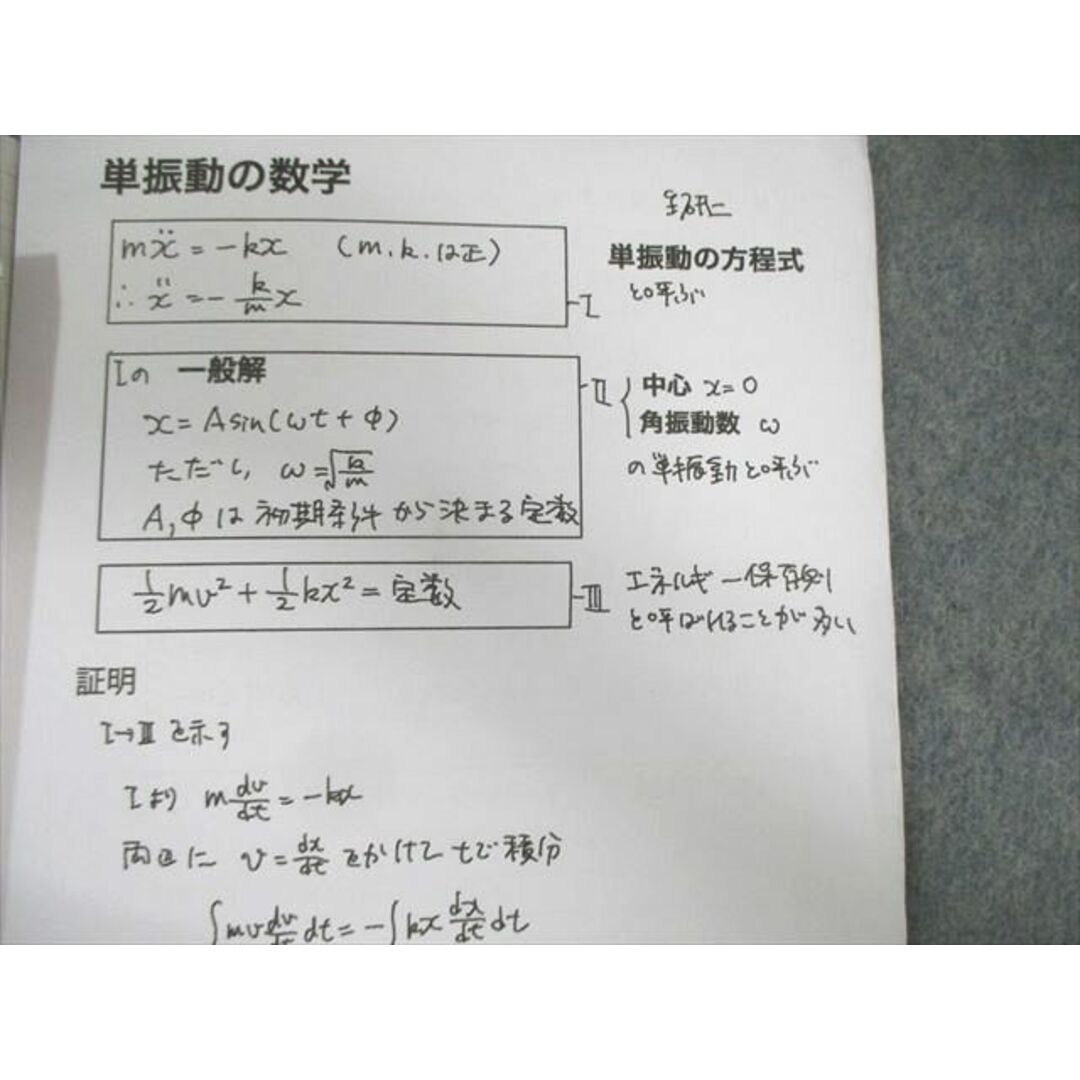 単振動の数学
mẍ = -kx (m, k, は正)
∴ ẍ = - k/m x
I
単振動の方程式
と呼ぶ
Iの 一般解
x = A sin(ωt + φ)
ただし, ω = √(k/m)
A, φ は 初期条件 から決まる定数
II
中心 x = 0
角振動数 ω
の単振動と呼ぶ
1/2 mv² + 1/2 kx² = 定数
III
エネルギー保存則
と呼ばれることが多い
証明
I→III を示す
Iより m dv/dt = -kx
両辺に v = dx/dt をかけて tで積分
∫ mv dv/dt dt = -∫ kx dx/dt dt